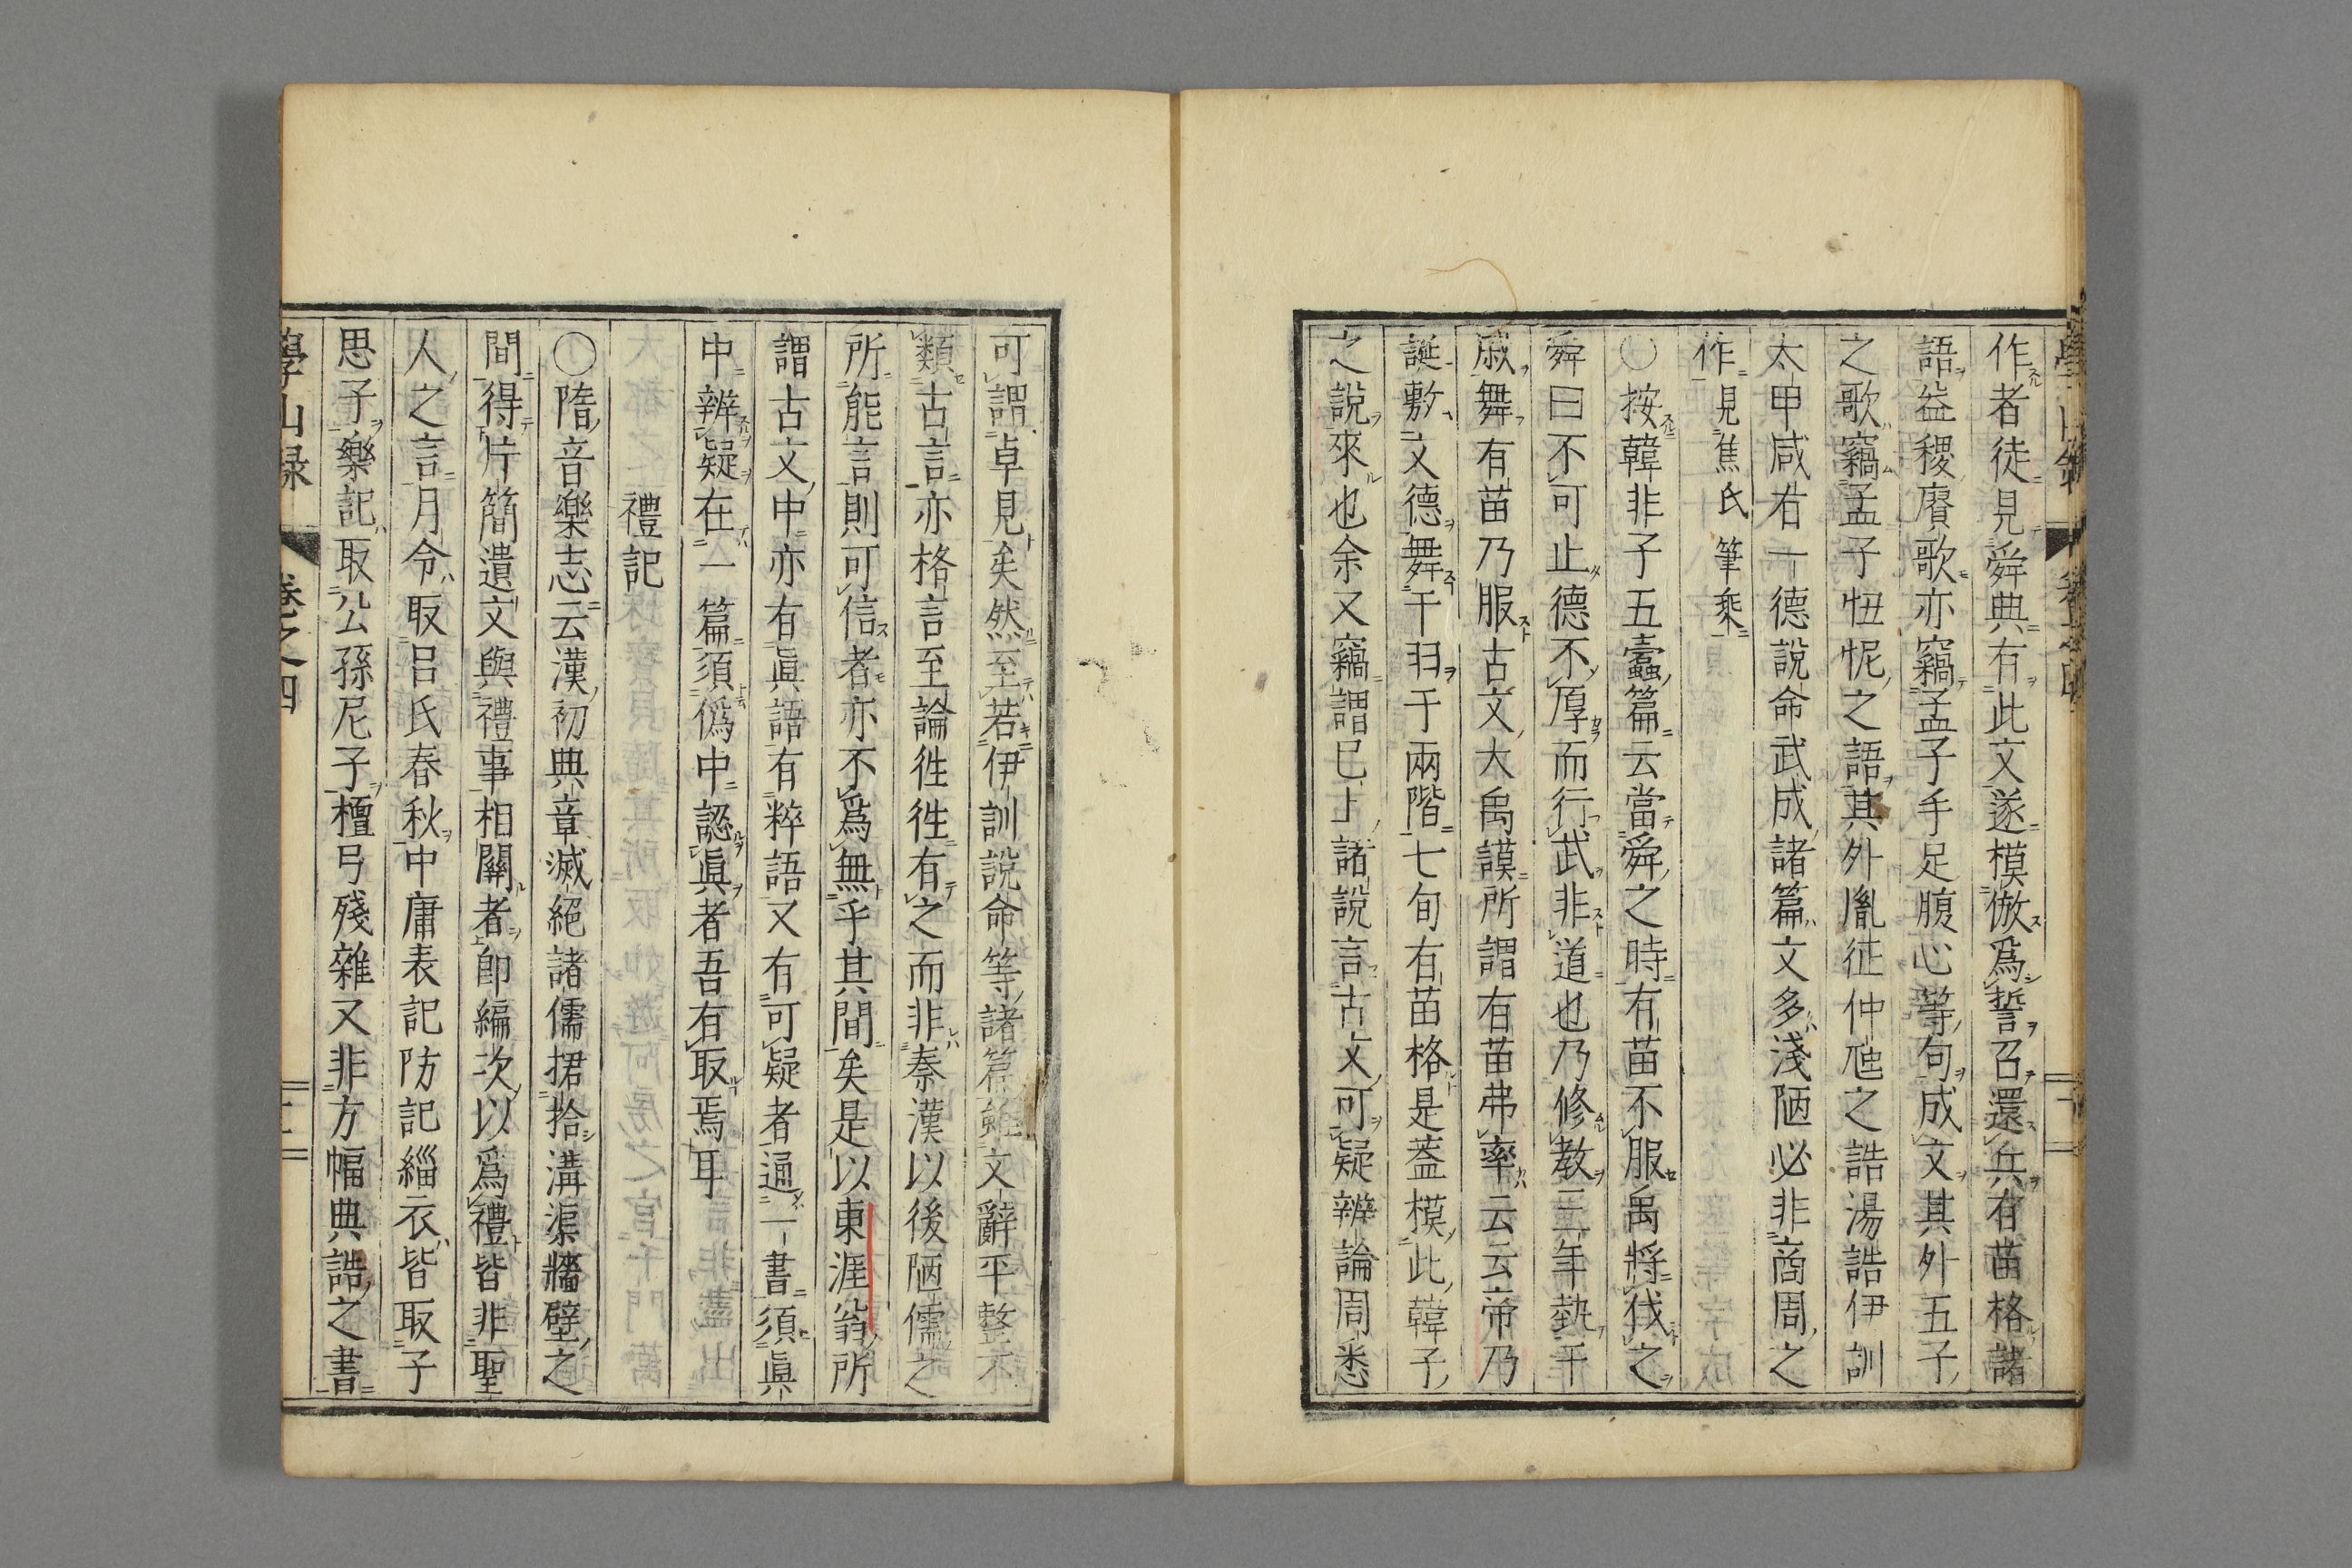 作者徒見舜典有此文遂模倣爲誓召還兵有苗格諸
語益稷賡歌亦竊孟子手足腹心等句成文其外五子
之歌竊孟子忸怩之語其外胤征仲虺之誥湯誥伊訓
太甲咸右一德說命武成諸篇文多淺陋必非商周之
作見焦氏筆乘
〇按韓非子五蠹篇云當舜之時有苗不服禹將伐之
舜曰不可止德不厚而行武非道也乃修教三年執干
戚舞有苗乃服古文大禹謨所謂有苗弗率云云帝乃
誕敷文德舞干羽于兩階七旬有苗格是蓋模此韓子
之說來也余又竊謂已上諸說言古文可疑辨論周悉
可謂卓見矣然至若伊訓說命等諸篇雖文辭平整不
類古言亦格言至論徃徃有之而非秦漢以後陋儒之
所能言則可信者亦不爲無乎其間矣是以東涯翁所
謂古文中亦有眞語有粹語又有可疑者通一書須眞
中辨疑在一篇須僞中認眞者吾有取焉耳
禮記
〇隋音樂志云漢初典章滅絕諸儒捃拾溝渠牆壁之
間得片簡遺文與禮事相關者卽編次以爲禮皆非聖
人之言月令取呂氏春秋中庸表記防記緇衣皆取子
思子樂記取公孫尼子檀弓殘雜又非方幅典誥之書
學山錄 卷之四